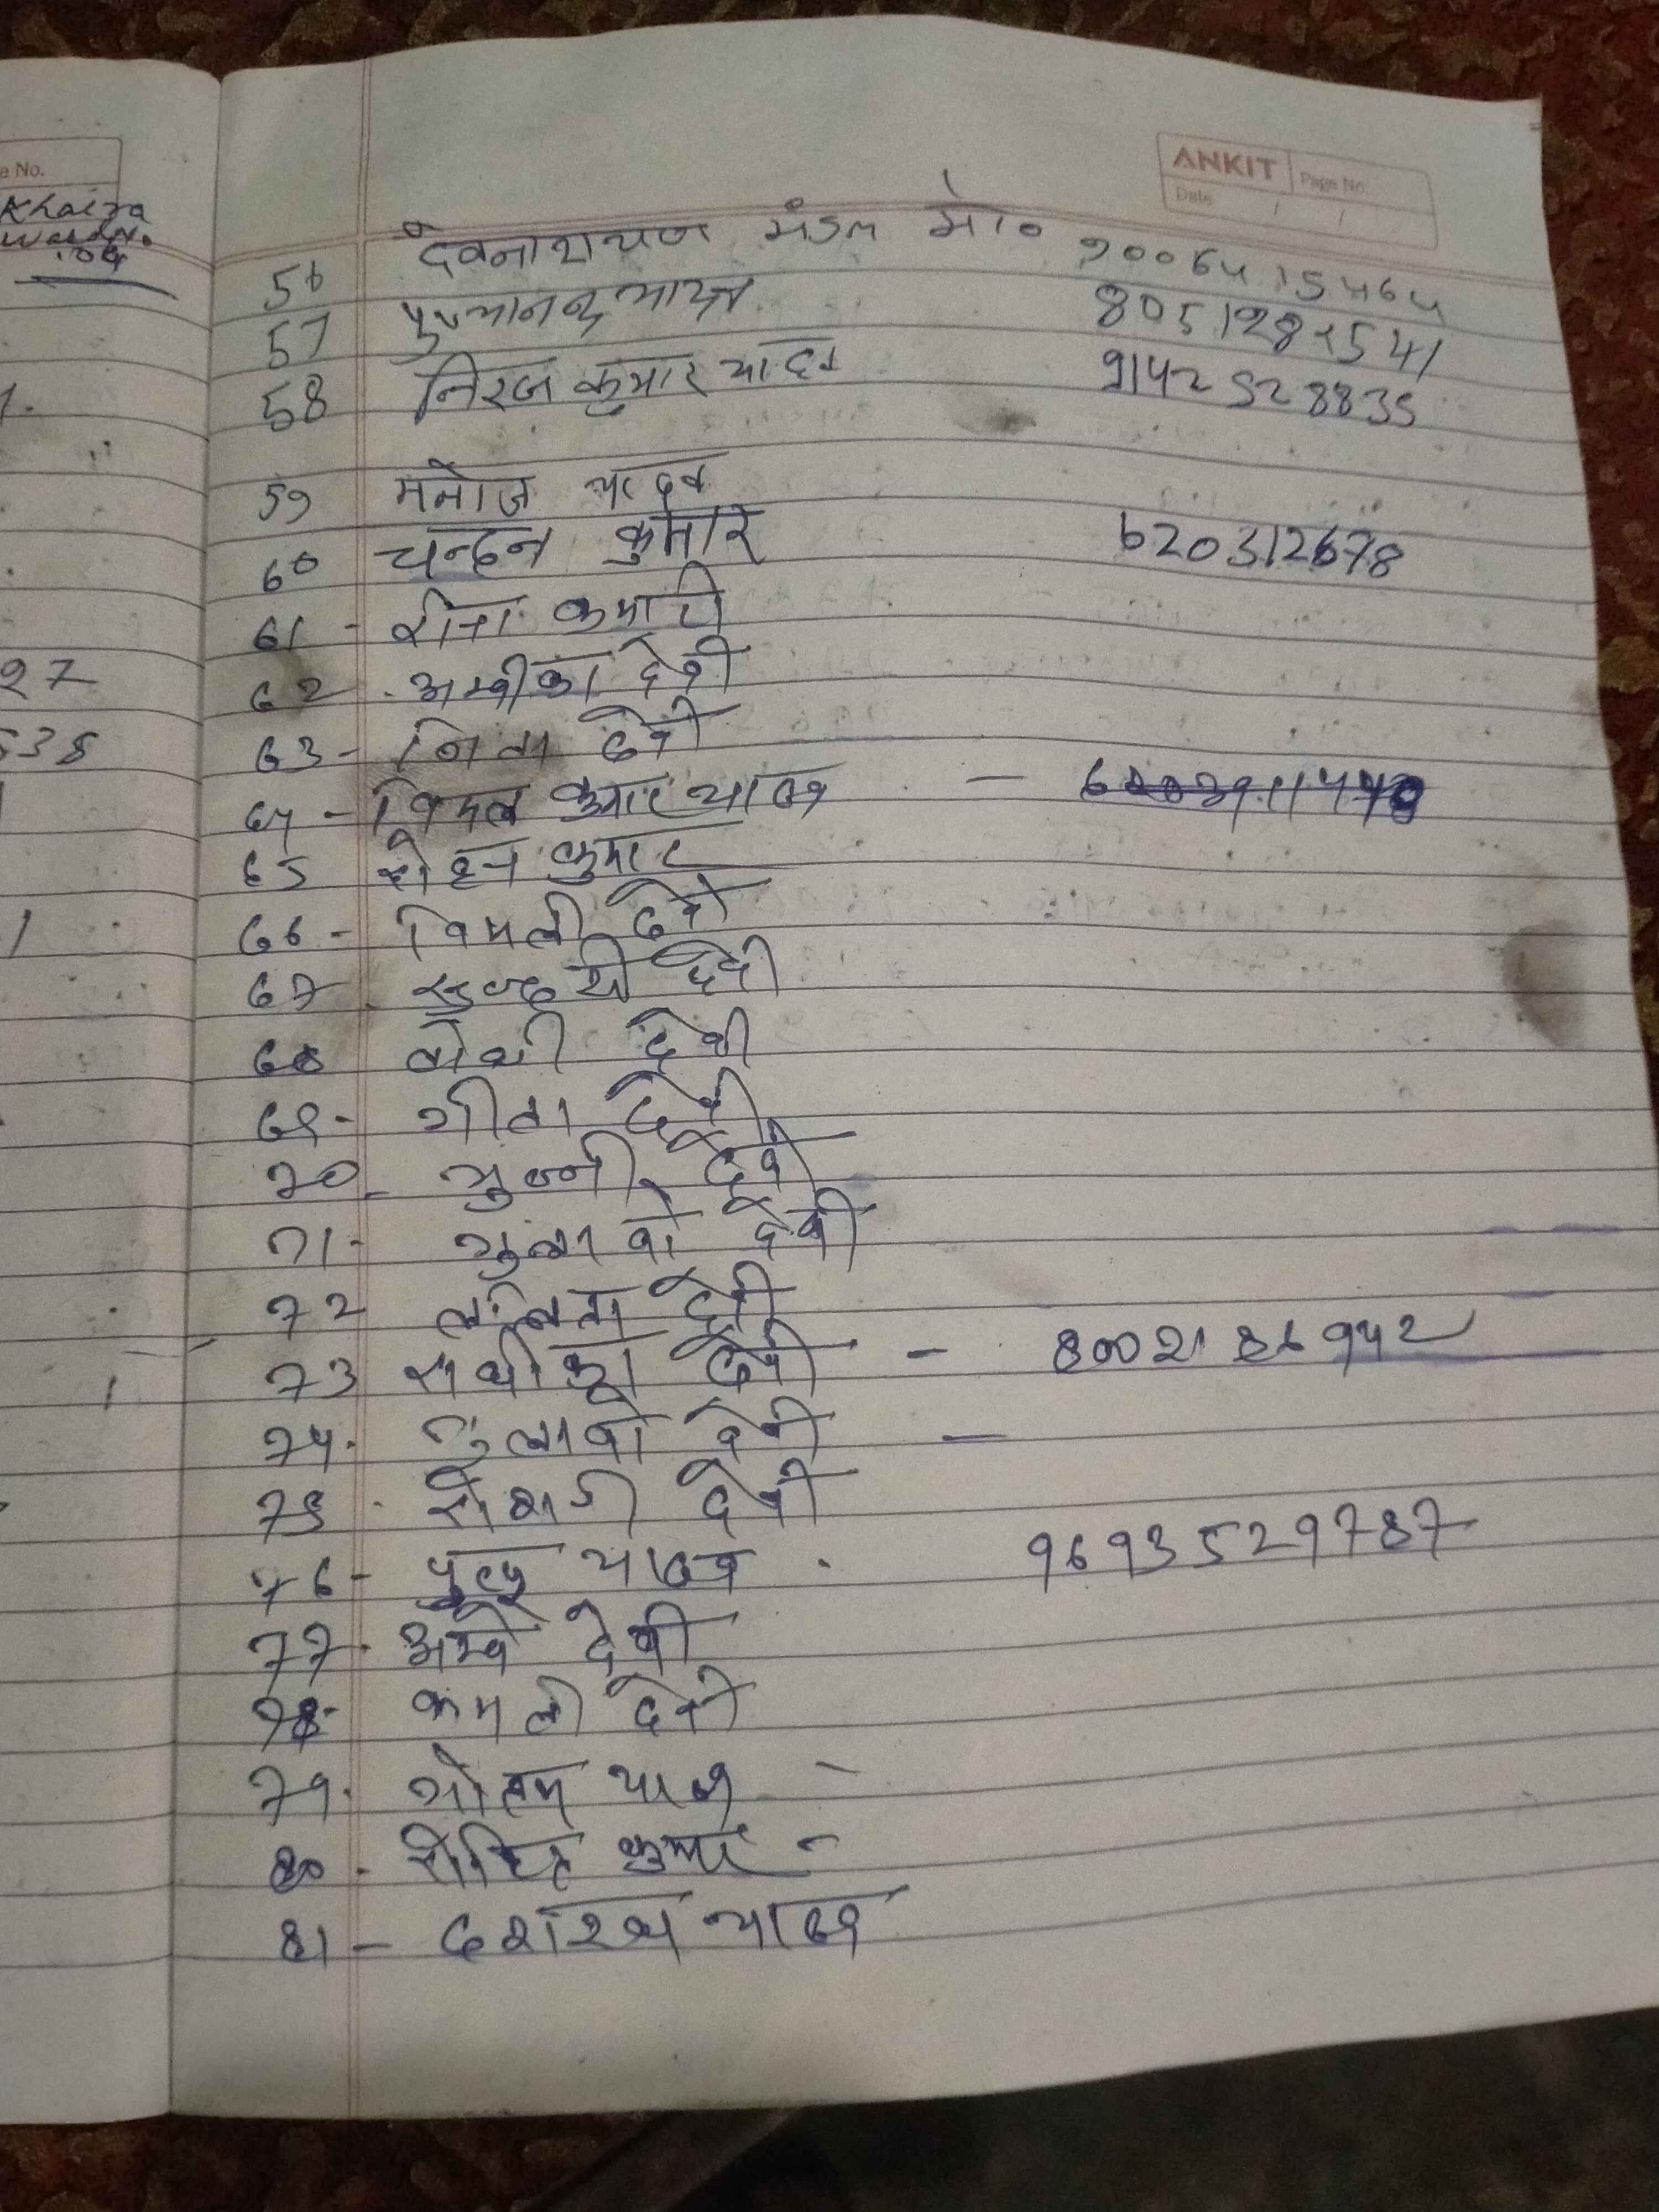 e No.
Khaira
Ward No.
.04
27
538
ANKIT Page No.
Date / /
56 देवनारायण मंडल मो० 9006415464
57 8051281541
58 निरज कुमार यादव 9142528835
59 मनोज यादव
60 चन्दन कुमार 620312678
61 - रीना कुमारी
62 - अम्बीका देवी
63 - निता देवी
64 - विमल कुमार यादव -
65 रोहन कुमार
66 - विमली देवी
67 - देवी
68 देवी
69 - गीता देवी
70 - मुन्नी देवी
71 - गुलाबी देवी
72 ललिता देवी
73 देवी - 8002186942
74 - देवी -
75 - देवी
76 - यादव - 9693529787
77 - अम्बे देवी
78 - कमली देवी
79 - गौतम यादव -
80 - रोहित कुमार -
81 - दशरथ यादव